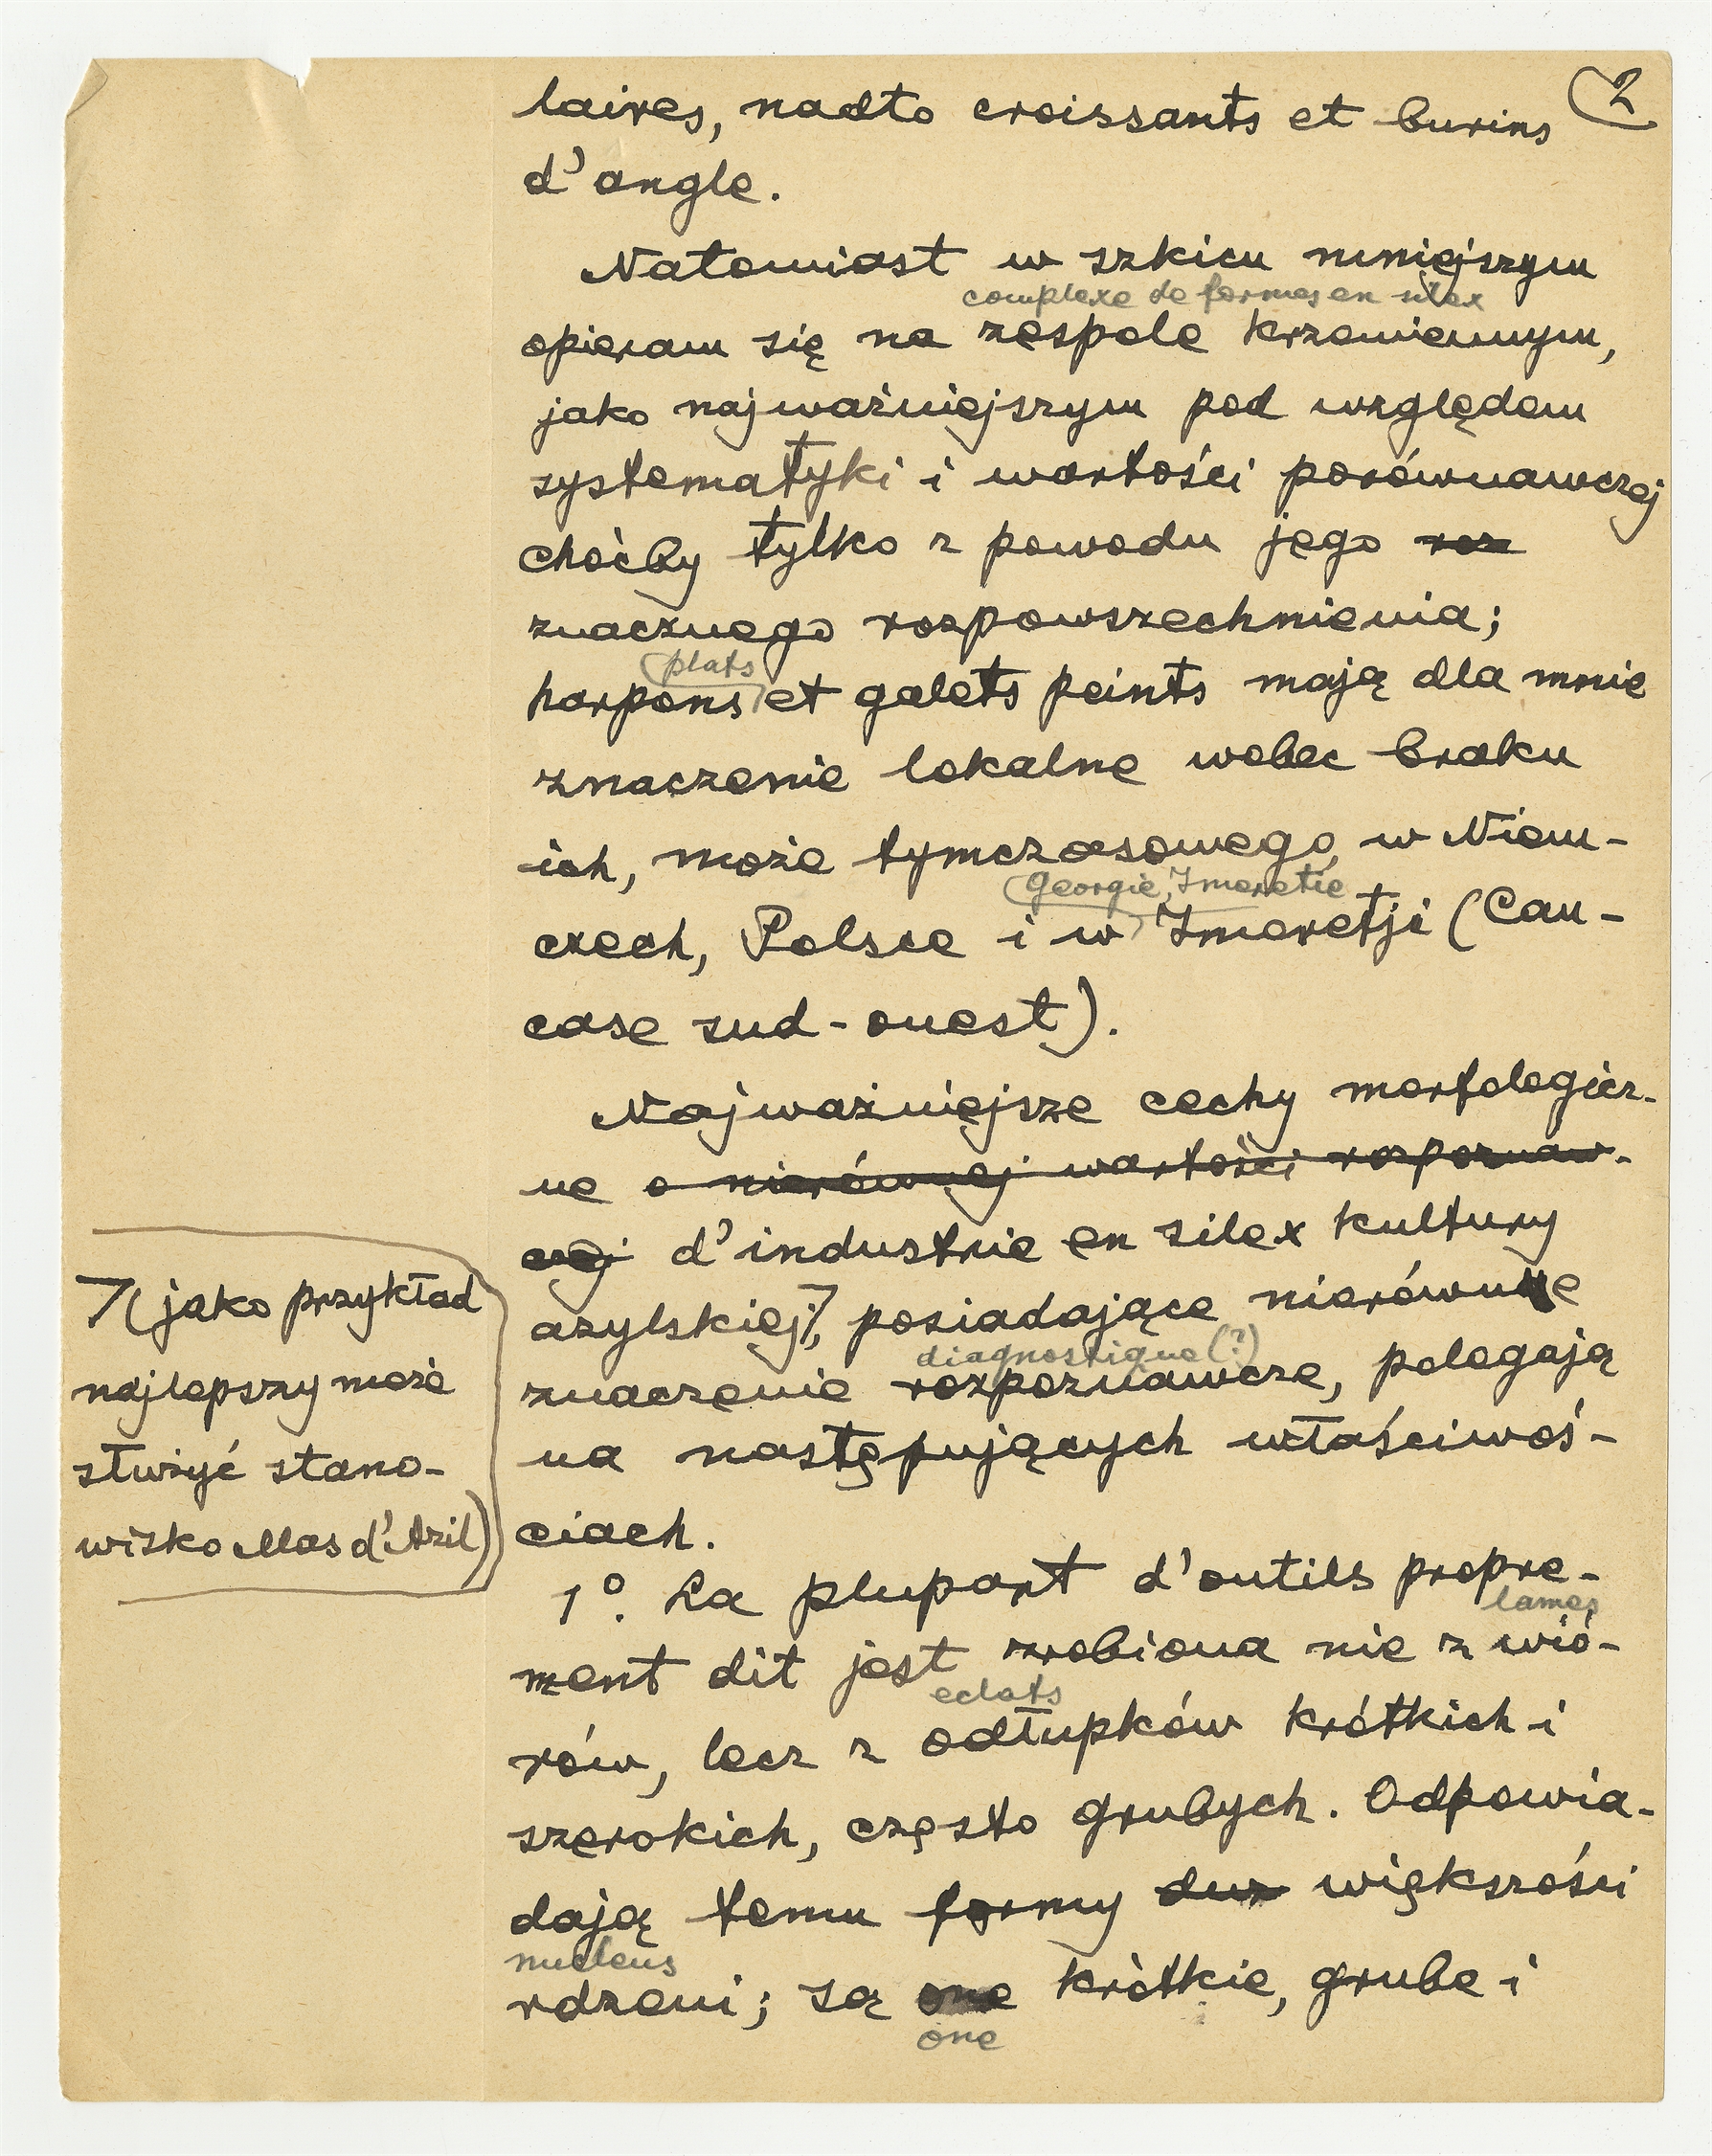 2
laires, nadto croissants et burins
d'angle.
Natomiast w szkicu niniejszym
complexe de formes en silex
opieram się na zespole krzemiennym,
jako najważniejszym pod względem
systematyki i wartości porównawczej
choćby tylko z powodu jego roz
znacznego rozpowszechnienia;
plats
harpons et galets peints mają dla mnie
znaczenie lokalne wobec braku
ich, może tymczasowego, w Niem-
Georgie, Imeretie
czech, Polsce i w Imeretji (Cau-
case sud-ouest).
Najważniejsze cechy morfologicz-
ne o nierównej wartości rozpoznaw-
czej d'industrie en silex kultury
azylskiej, posiadające nierówne
diagnostique (?)
znaczenie rozpoznawcze, polegają
na następujących właściwoś-
ciach.
(jako przykład
najlepszy może
służyć stano-
wisko Mas d'Azil)
1º. La plupart d'outils propre-
lames
ment dit jest zrobiona nie z wió-
eclats
rów, lecz z odłupków krótkich i
szerokich, często grubych. Odpowia-
dają temu formy duż większości
nucleus
rdzeni; są one krótkie, grube i
one